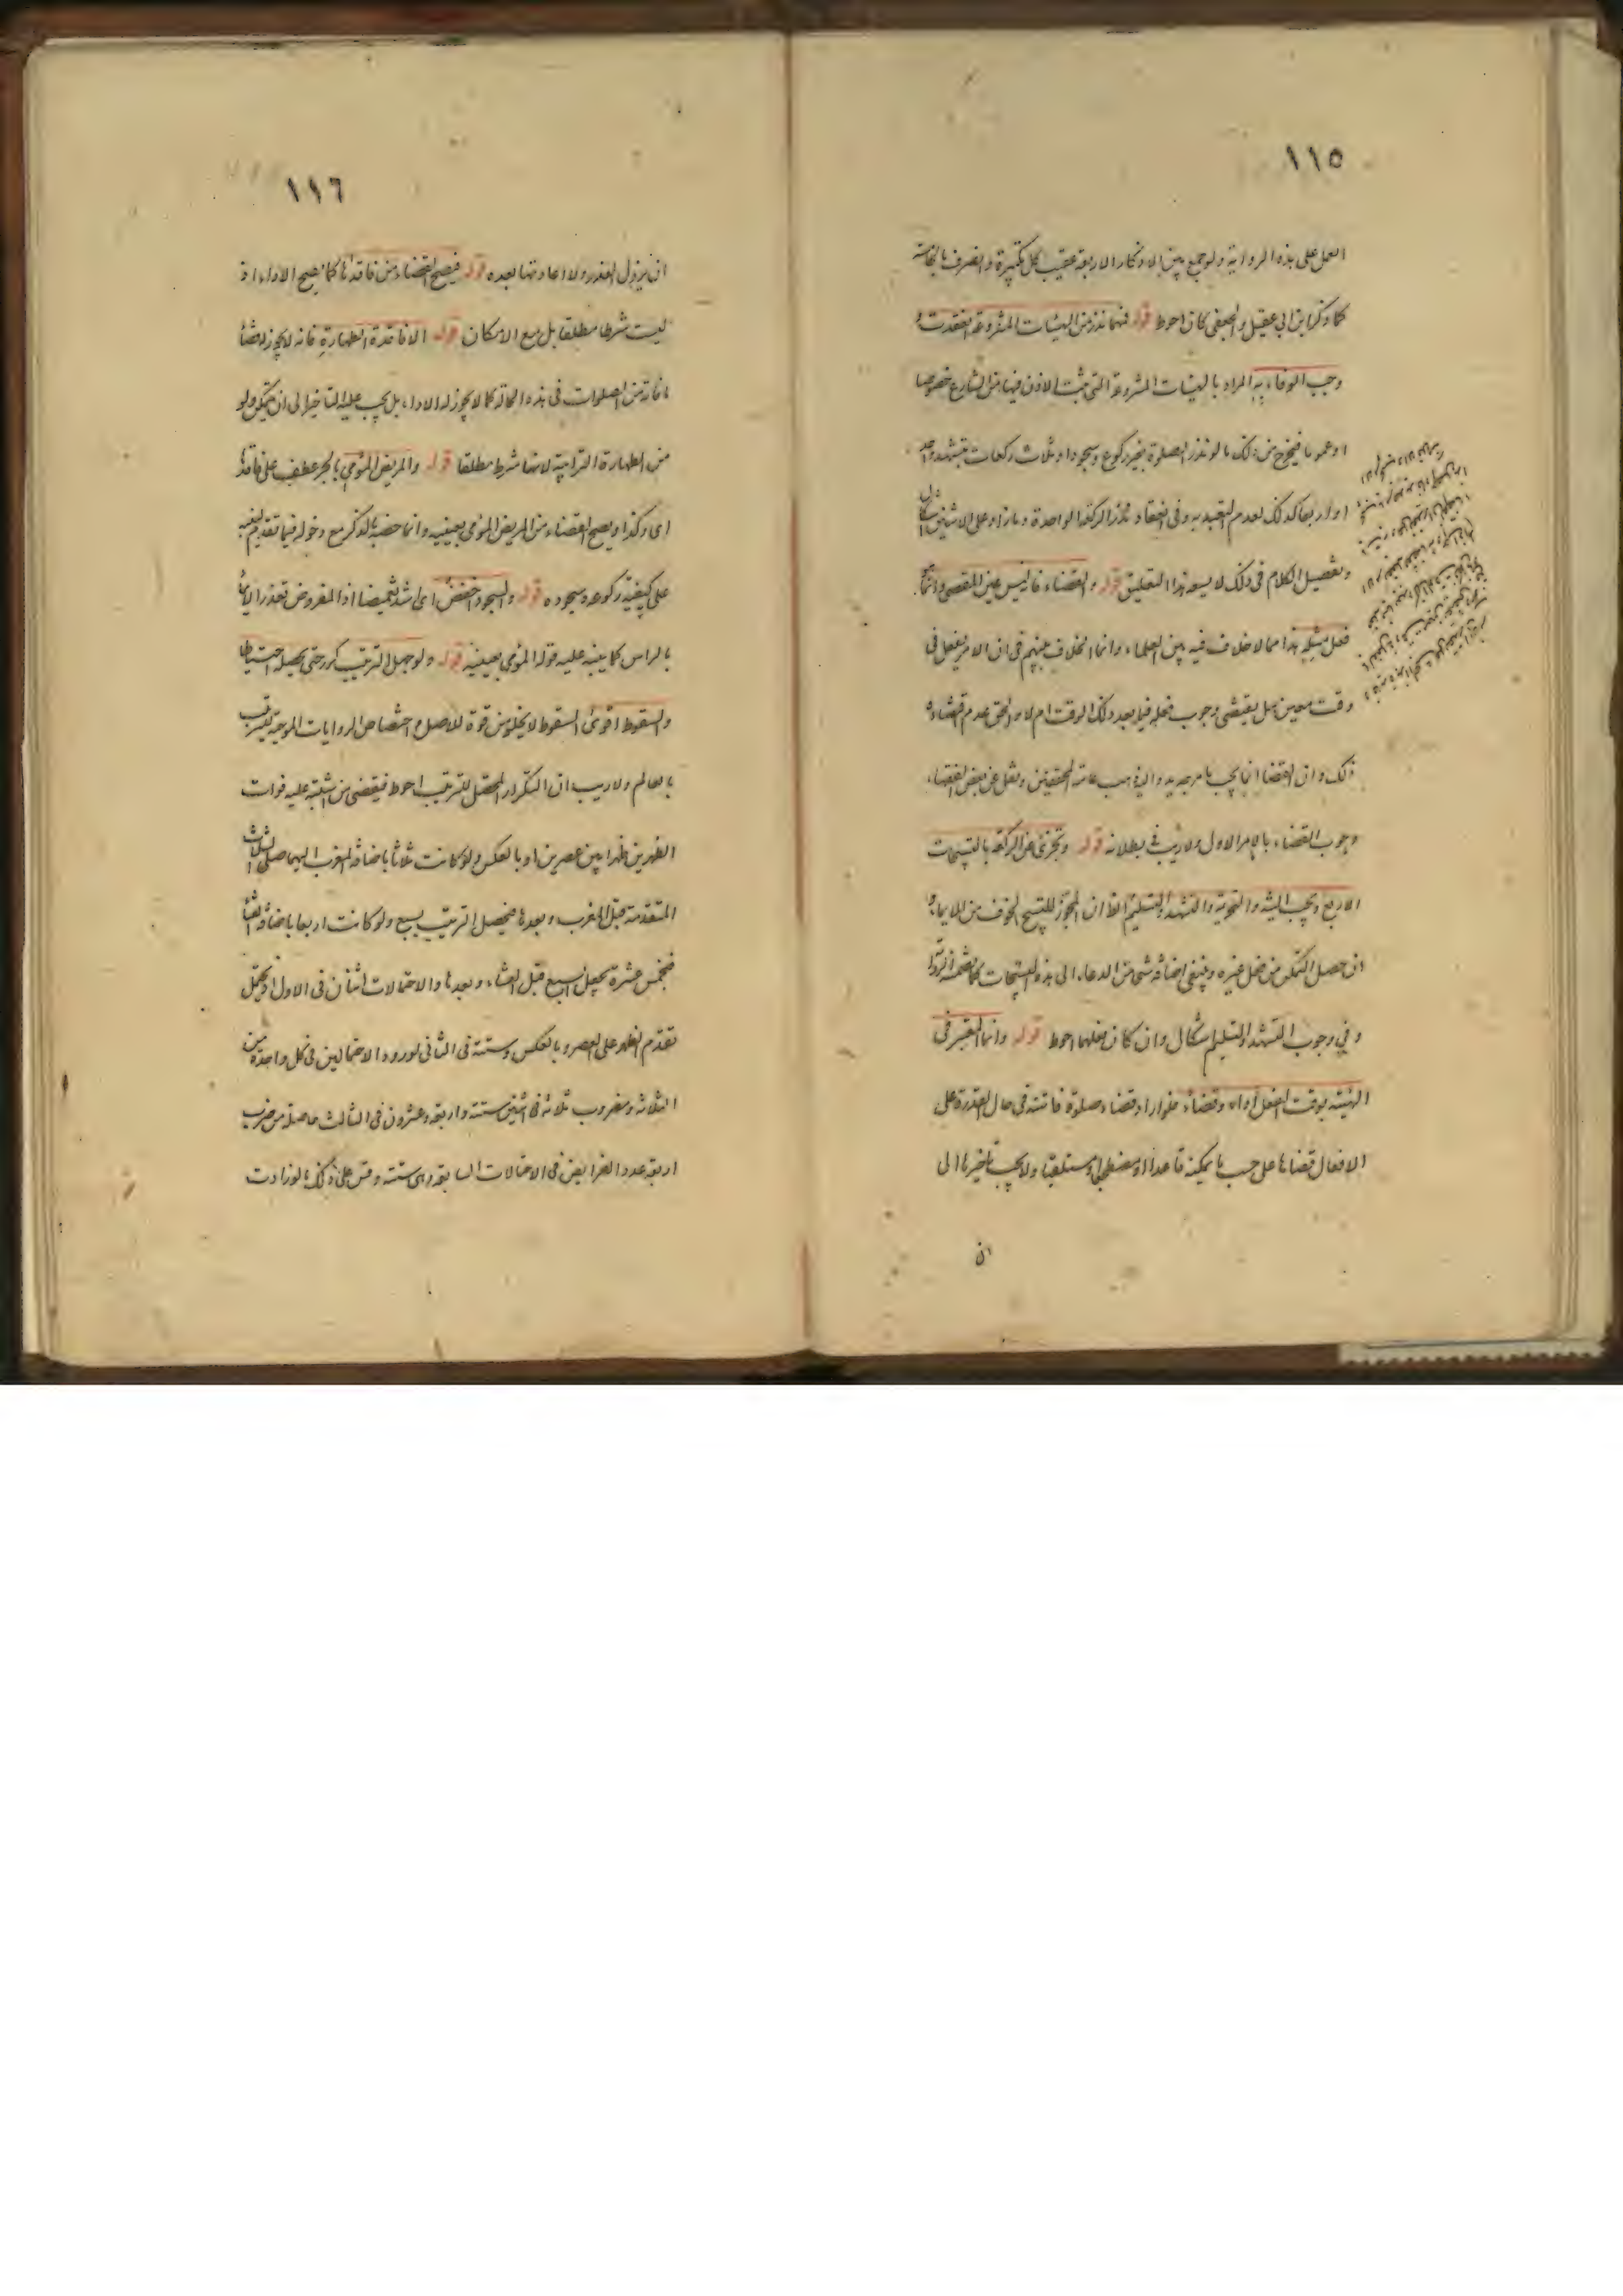 ١١٥
العمل على هذه الرواية ولو جمع بين الاذكار الاربعة عقيب كل تكبيرة وانصرف بالخامسة
كما ذكر ابن ابي عقيل والجعفي كان احوط قوله فمهما نذر من الهيئات المشروعة انعقدت و
وجب الوفاء به المراد بالهيئات المشروعة التي ثبت الاذن فيها من الشارع خصوصا
او عموما فيخرج من ذلك ما لو نذر الصلوة بغير ركوع وسجود او ثلاث ركعات بتشهد واحد
او اربعا كذلك لعدم التعبد به وفي انعقاد نذر الركعة الواحدة وما زاد على الاثنين اشكال
وتفصيل الكلام في ذلك لا يسعه هذا التعليق قوله والقضاء فانه ليس عين المقضي وانما
فعل مثله هذا مما لا خلاف فيه بين العلماء وانما الخلاف بينهم في ان الامر بفعل في
وقت معين هل يقتضي وجوب فعله فيما بعد ذلك الوقت ام لا والحق عدم اقتضائه
ذلك وان القضا انما يجب بامر جديد واليه ذهب عامة المحققين ونقل عن بعض الفقهاء
وجوب القضاء بالامر الاول ولا ريب في بطلانه قوله وتجزئ عن الركعة بالتسبيحات
الاربع وتجب النية والتحريمة والتشهد والتسليم لظ ان المجوز للتسبيح الخوف من الايماء و
ان حصل التمكن من فعل غيره وينبغي اضافة شي من الدعاء الى هذه التسبيحات كما تضمنه الرواية
وفي وجوب التشهد والتسليم اشكال وان كان فعلهما احوط قوله وانما المعتبر في
الهيئة بوقت الفعل اداء وقضاء فلو اراد قضاء صلوة فائتة في حال القدرة على
الافعال قضاها على حسب ما يمكنه قاعدا او مضطجعا او مستلقيا ولا يجب تأخيرها الى
ان
١١٦
ان يزول العذر ولا اعادتها بعده قوله فيصح القضاء من فاقدها كما يصح الاداء اذ
ليست شرطا مطلقا بل مع الامكان قوله الا فاقدة الطهارة فانه لا يجوز قضاء
ما فاته من الصلوات في هذه الحالة كما لا يجوز له الاداء بل يجب عليه التأخير الى ان يتمكن ولو
من الطهارة الترابية لانها شرط مطلقا قوله والمريض المؤمي بالجر عطف على فاقدها
اى وكذا ويصح القضاء من المريض المؤمي بعينيه وانما خصه بالذكر مع دخوله فيما تقدم
على كيفية ركوعه وسجوده قوله والسجود اخفض اى اشد تغميضا اذ المفروض تعذر الايماء
بالراس كما ينبه عليه قوله المؤمي بعينيه قوله ولو جهل الترتيب كرر حتى يحصله احتياطا
والسقوط اقوى السقوط لا يخلو من قوة للاصل واختصاص الروايات الموجبة للترتيب
بالعالم ولا ريب ان التكرار المحصل للترتيب احوط فيقضي من اشتبه عليه فوات
الظهرين ظهرا بين عصرين او بالعكس ولو كانت ثلاثا باضافة المغرب اليهما صلى الثلاث
المتقدمة قبل المغرب وبعدها فيحصل الترتيب بسبع ولو كانت اربعا باضافة العشاء
فخمس عشرة بجعل السبع قبل العشاء وبعدها والاحتمالات اثنان في الاول اذ يحتمل
تقدم الظهر على العصر وبالعكس وستة في الثاني لورود الاحتمالين في كل واحدة من
الثلاثة ومضروب ثلاثة في اثنين ستة واربعة وعشرون في الثالث حاصلة من ضرب
اربعة عدد الفرايض في الاحتمالات السابقة وهي ستة وقس على ذلك ما لو زادت